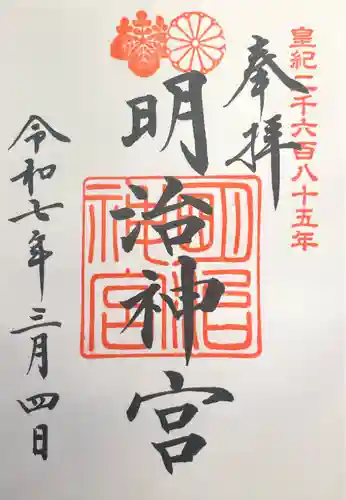 皇紀二千六百八十五年
奉拝
明治神宮
明治神宮
令和七年三月四日